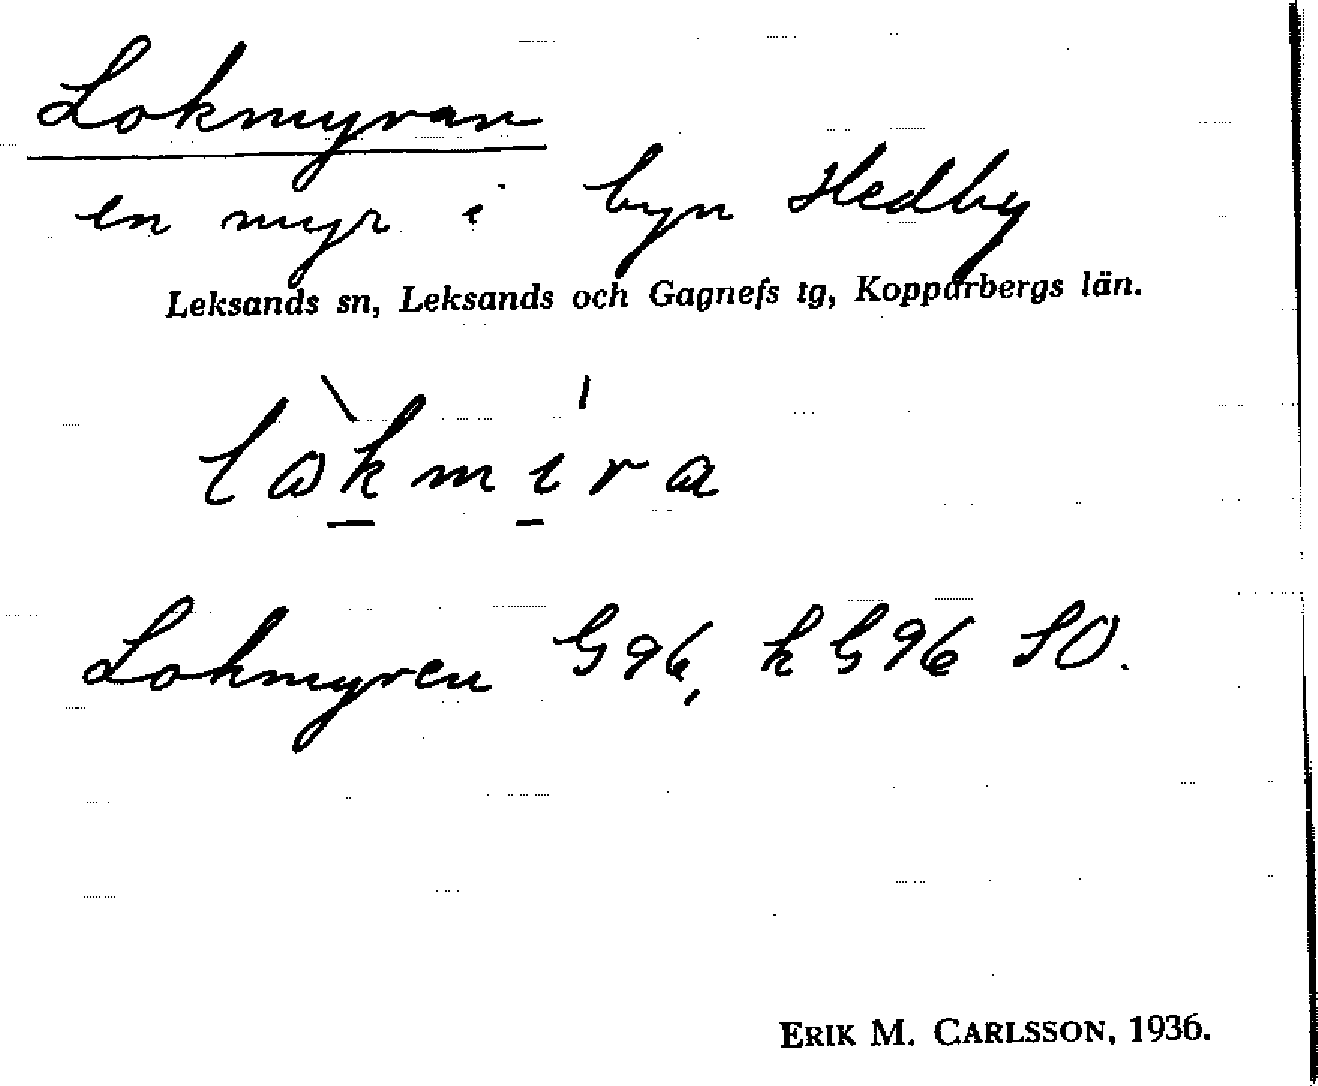 Lokmyran
en myr i byn Hedby
Leksands sn, Leksands och Gagnefs tg, Kopparbergs län.
Lokmyren G96, k G96 SO.
ERIK M. CARLSSON, 1936.